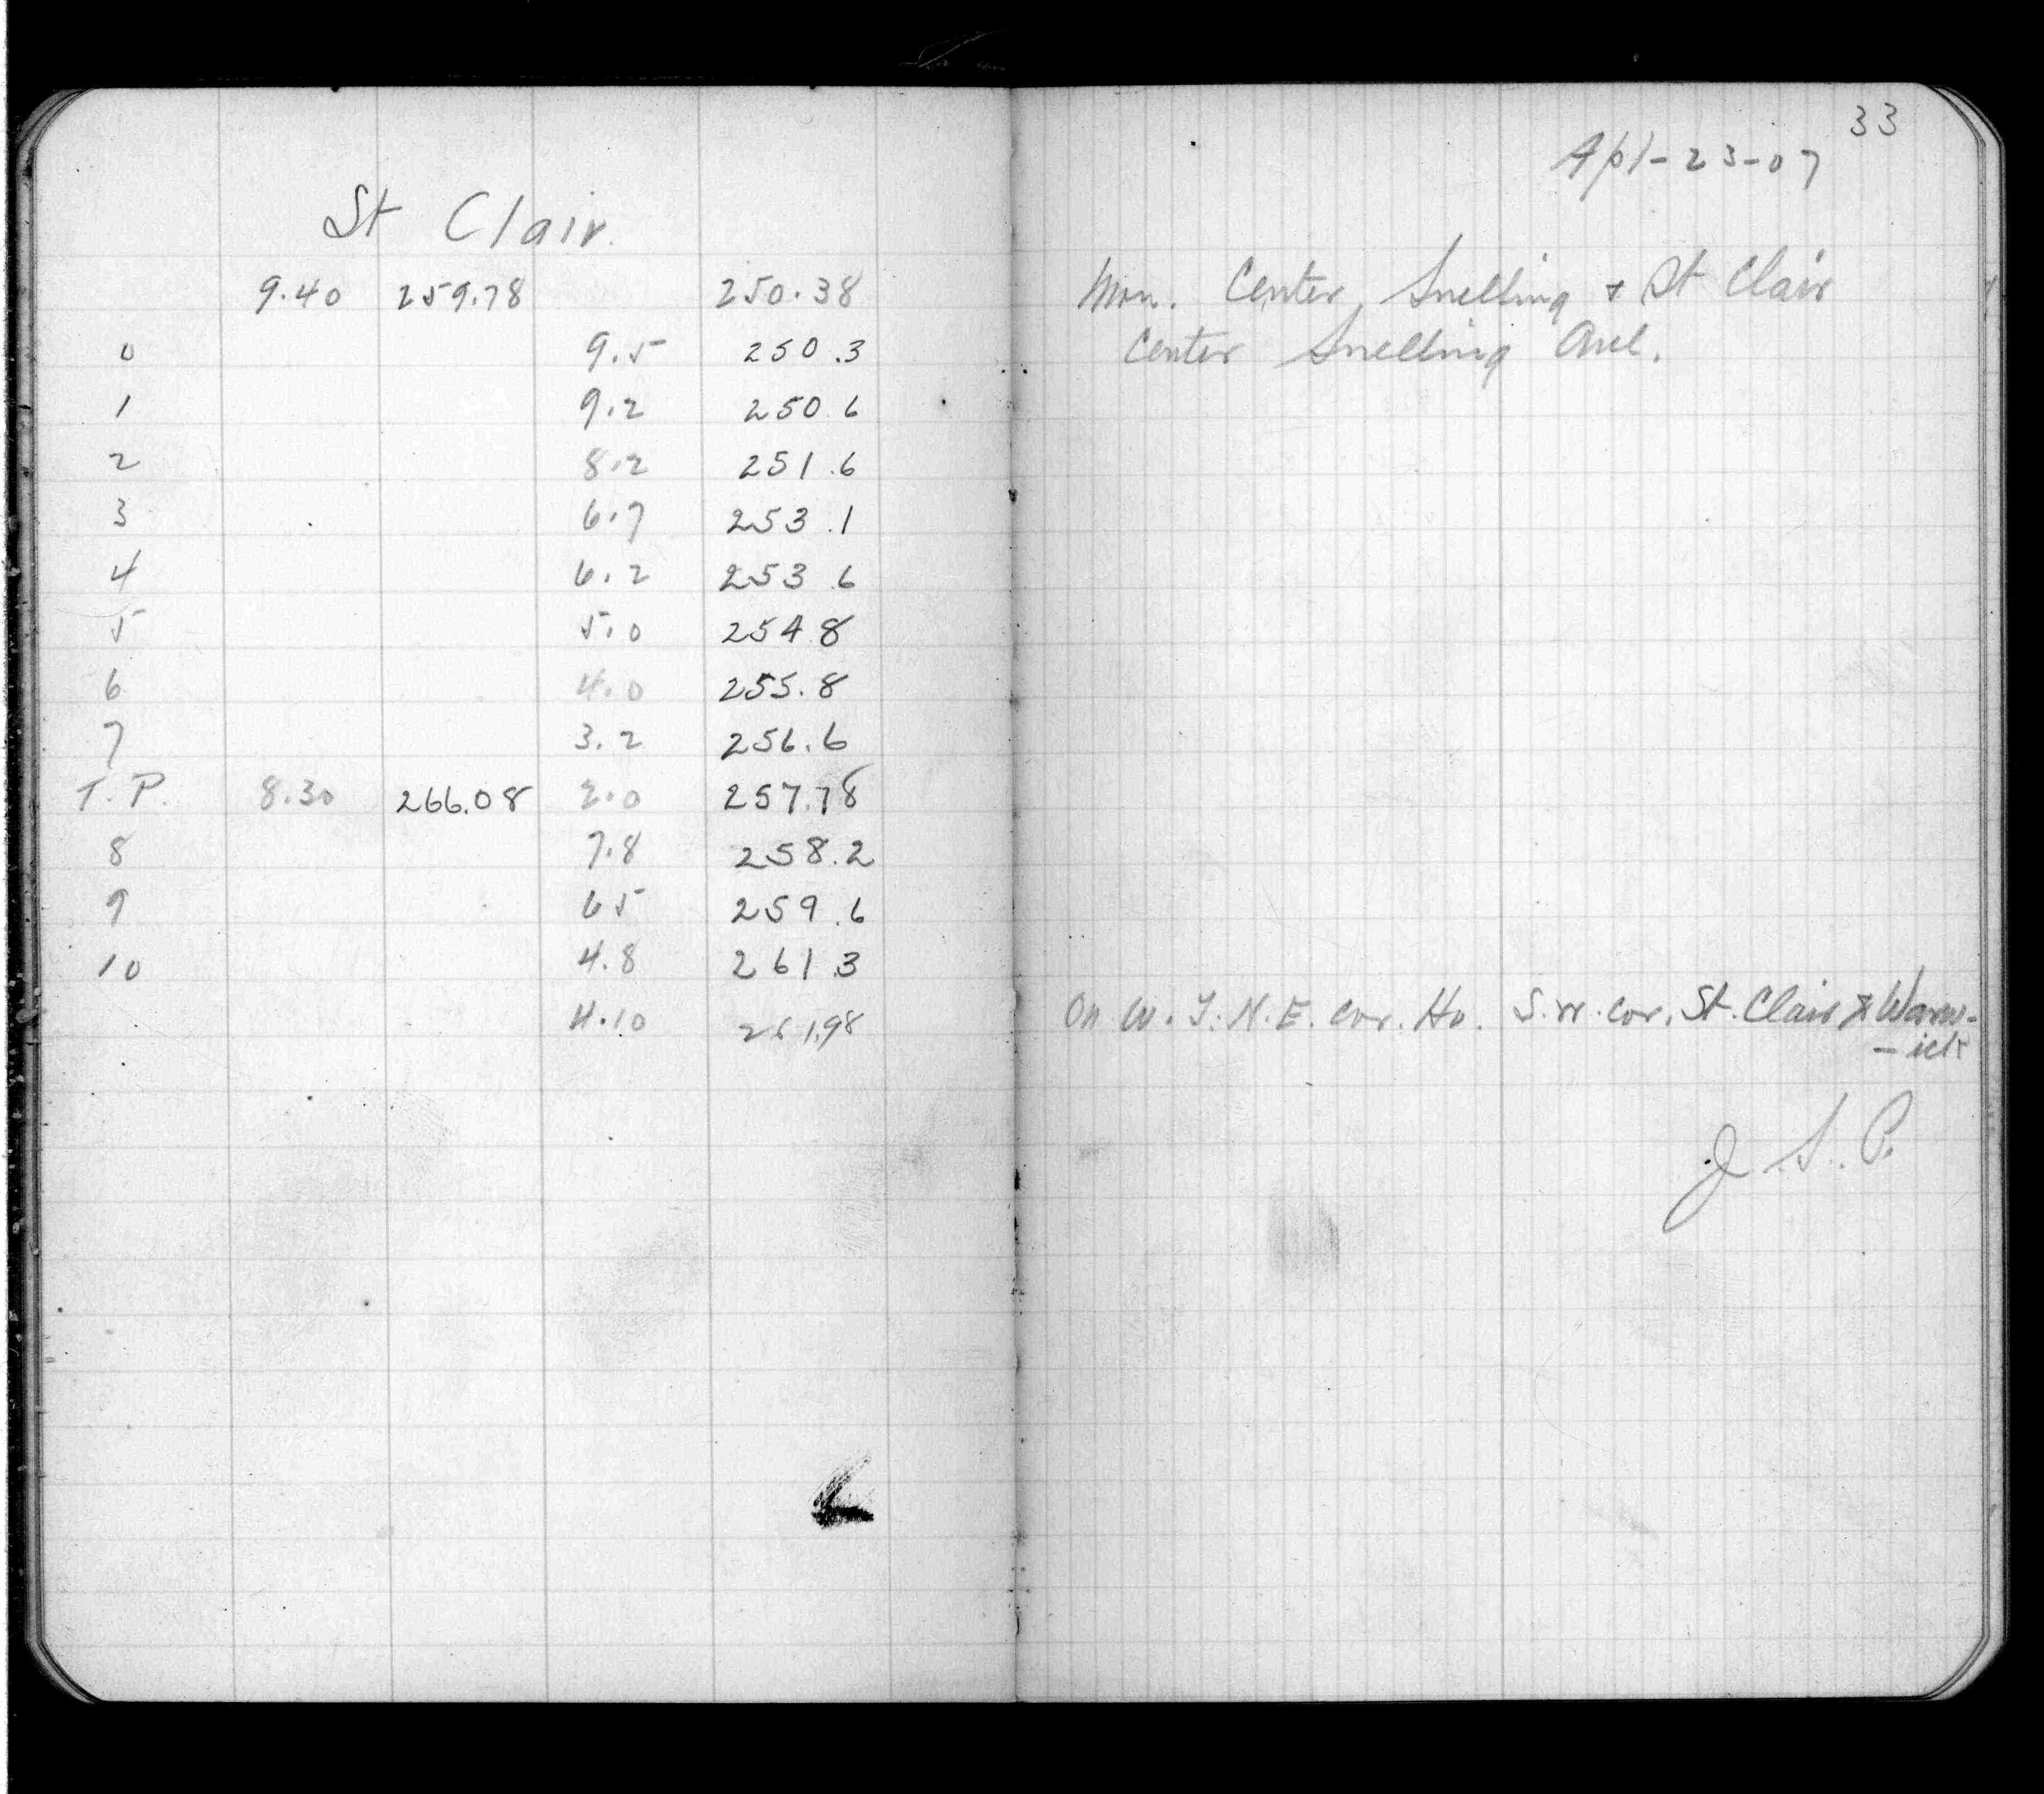 St Clair.
9.40 259.78 250.38
0 9.5 250.3
1 9.2 250.6
2 8.2 251.6
3 6.7 253.1
4 6.2 253.6
5 5.0 254.8
6 4.0 255.8
7 3.2 256.6
T.P. 8.30 266.08 2.0 257.78
8 7.8 258.2
9 6 5 259.6
10 4.8 261.3
4.10 261.98
33
Apl-23-07
Mon. Center Snelling & St Clair
Center Snelling Ave.
On W. T. N.E. cor. Ho. S.W. cor. St. Clair & Warw-
-ick
J.S.P.